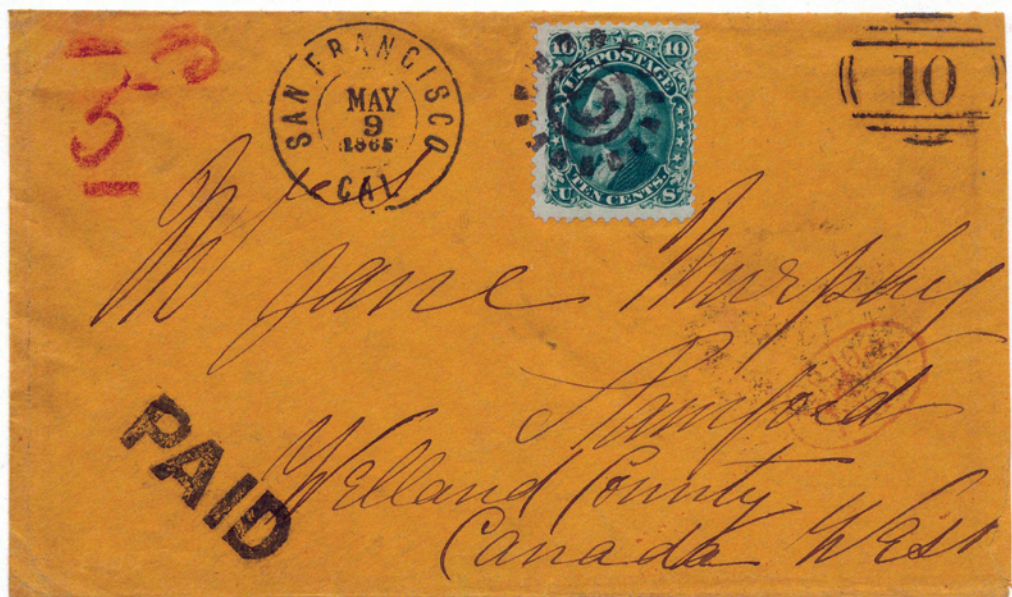 5
SAN FRANCISCO
MAY
9
1865
CAL.
10 10
U.S. POSTAGE
TEN CENTS.
U S
10
Jane Murphy
Stamford
Welland County
Canada West
PAID